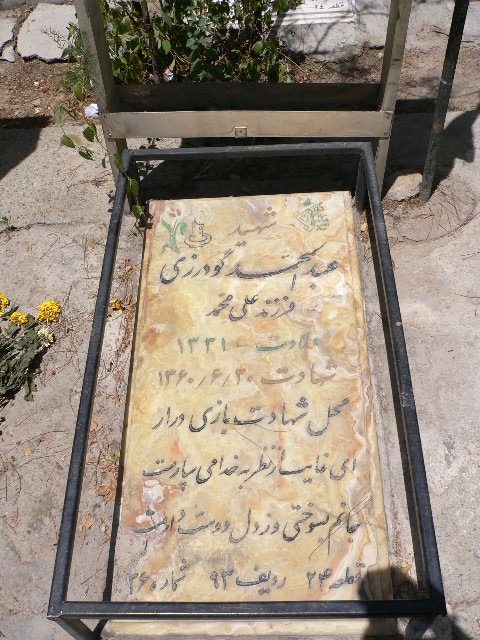 شهید
عبدالحمید گودرزی
فرزند علی محمد
ولادت - ۱۳۳۱
شهادت ۱۳۶۰/۶/۳۰
محل شهادت بازی دراز
ای غایب از نظر به خدا می سپارمت
جانم بسوختی و ز دل دوست دارمت
قطعه ۲۴ ردیف ۹۳ شماره ۲۶